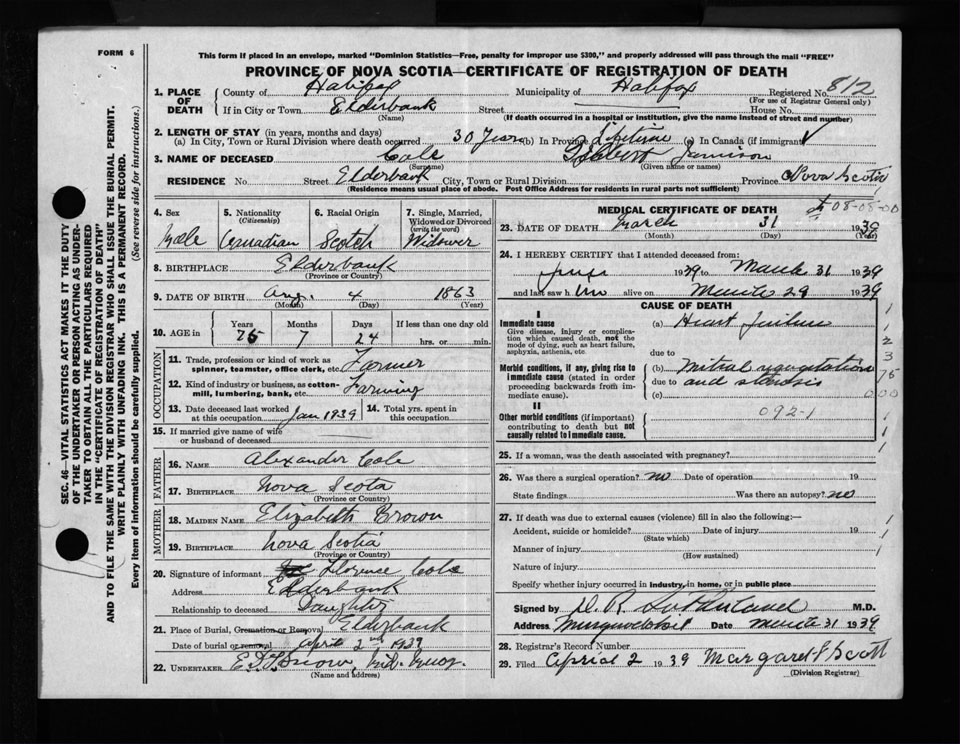 FORM 6
This form if placed in an envelope, marked "Dominion Statistics—Free, penalty for improper use $300," and properly addressed will pass through the mail "FREE"
PROVINCE OF NOVA SCOTIA—CERTIFICATE OF REGISTRATION OF DEATH
1. PLACE OF DEATH
County of Halifax Municipality of Halifax Registered No. 812
(For use of Registrar General only)
If in City or Town Elderbank Street House No.
(Name) (If death occurred in a hospital or institution, give the name instead of street and number)
2. LENGTH OF STAY (in years, months and days)
(a) In City, Town or Rural Division where death occurred 30 Years (b) In Province Lifetime (c) In Canada (if immigrant) ✓
3. NAME OF DECEASED Cole Jamison
(Surname) (Given name or names)
RESIDENCE No. Street Elderbank City, Town or Rural Division Province Nova Scotia
(Residence means usual place of abode. Post Office Address for residents in rural parts not sufficient)
4. Sex Male
5. Nationality (Citizenship) Canadian
6. Racial Origin Scotch
7. Single, Married, Widowed or Divorced (write the word) Widower
8. BIRTHPLACE Elderbank
(Province or Country)
9. DATE OF BIRTH Aug. 4 1863
(Month) (Day) (Year)
10. AGE in Years Months Days If less than one day old
75 7 24 hrs. or min.
OCCUPATION
11. Trade, profession or kind of work as spinner, teamster, office clerk, etc. Farmer
12. Kind of industry or business, as cotton-mill, lumbering, bank, etc. Farming
13. Date deceased last worked at this occupation Jan 1939 14. Total yrs. spent in this occupation
15. If married give name of wife or husband of deceased
FATHER
16. NAME Alexander Cole
17. BIRTHPLACE Nova Scota
(Province or Country)
MOTHER
18. MAIDEN NAME Elizabeth Brown
19. BIRTHPLACE Nova Scotia
(Province or Country)
20. Signature of informant Florence Cole
Address Elderbank
Relationship to deceased Daughter
21. Place of Burial, Cremation or Removal Elderbank
Date of burial or removal April 2nd 1939
22. UNDERTAKER
(Name and address)
MEDICAL CERTIFICATE OF DEATH
08-08-00
23. DATE OF DEATH March 31 1939
(Month) (Day) (Year)
24. I HEREBY CERTIFY that I attended deceased from:
1939 to March 31 1939
and last saw him alive on March 29 1939
CAUSE OF DEATH
I
Immediate cause
Give disease, injury or complication which caused death, not the mode of dying, such as heart failure, asphyxia, asthenia, etc.
(a) Heart failure
due to
Morbid conditions, if any, giving rise to immediate cause (stated in order proceeding backwards from immediate cause).
(b) Mitral regurgitation
due to and stenosis
(c)
II
Other morbid conditions (if important) contributing to death but not causally related to immediate cause.
092-1
25. If a woman, was the death associated with pregnancy?
26. Was there a surgical operation? no Date of operation 19
State findings Was there an autopsy? no
27. If death was due to external causes (violence) fill in also the following:—
Accident, suicide or homicide? Date of injury 19
(State which)
Manner of injury
(How sustained)
Nature of injury
Specify whether injury occurred in industry, in home, or in public place
Signed by D. R. Sutherland M.D.
Address Date March 31 1939
28. Registrar's Record Number
29. Filed April 2 1939 Margaret Scott
(Division Registrar)
SEC. 46—VITAL STATISTICS ACT MAKES IT THE DUTY
OF THE UNDERTAKER OR PERSON ACTING AS UNDER-
TAKER TO OBTAIN ALL THE PARTICULARS REQUIRED
IN THE "CERTIFICATE OF REGISTRATION OF DEATH"
AND TO FILE THE SAME WITH THE DIVISION REGISTRAR WHO SHALL ISSUE THE BURIAL PERMIT.
WRITE PLAINLY WITH UNFADING INK. THIS IS A PERMANENT RECORD.
Every item of information should be carefully supplied. (See reverse side for instructions.)